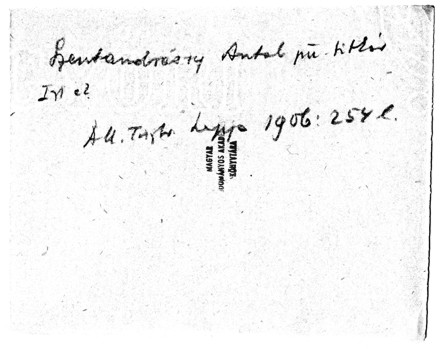 Szentandrássy Antal pü. titkár
Ill. Tisztv. Lapja 1906: 254 l.
MAGYAR
TUDOMÁNYOS AKADÉMIA
KÖNYVTÁRA